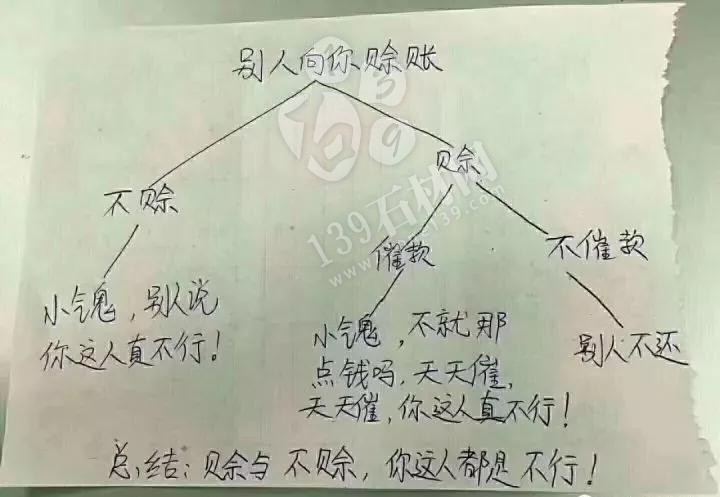 别人向你赊账
赊
不赊
催款
不催款
小气鬼，别人说
你这人真不行！
小气鬼，不就那
点钱吗，天天催，
天天催，你这人真不行！
别人不还
总结：赊与不赊，你这人都是不行！
139石材网
www.139.com